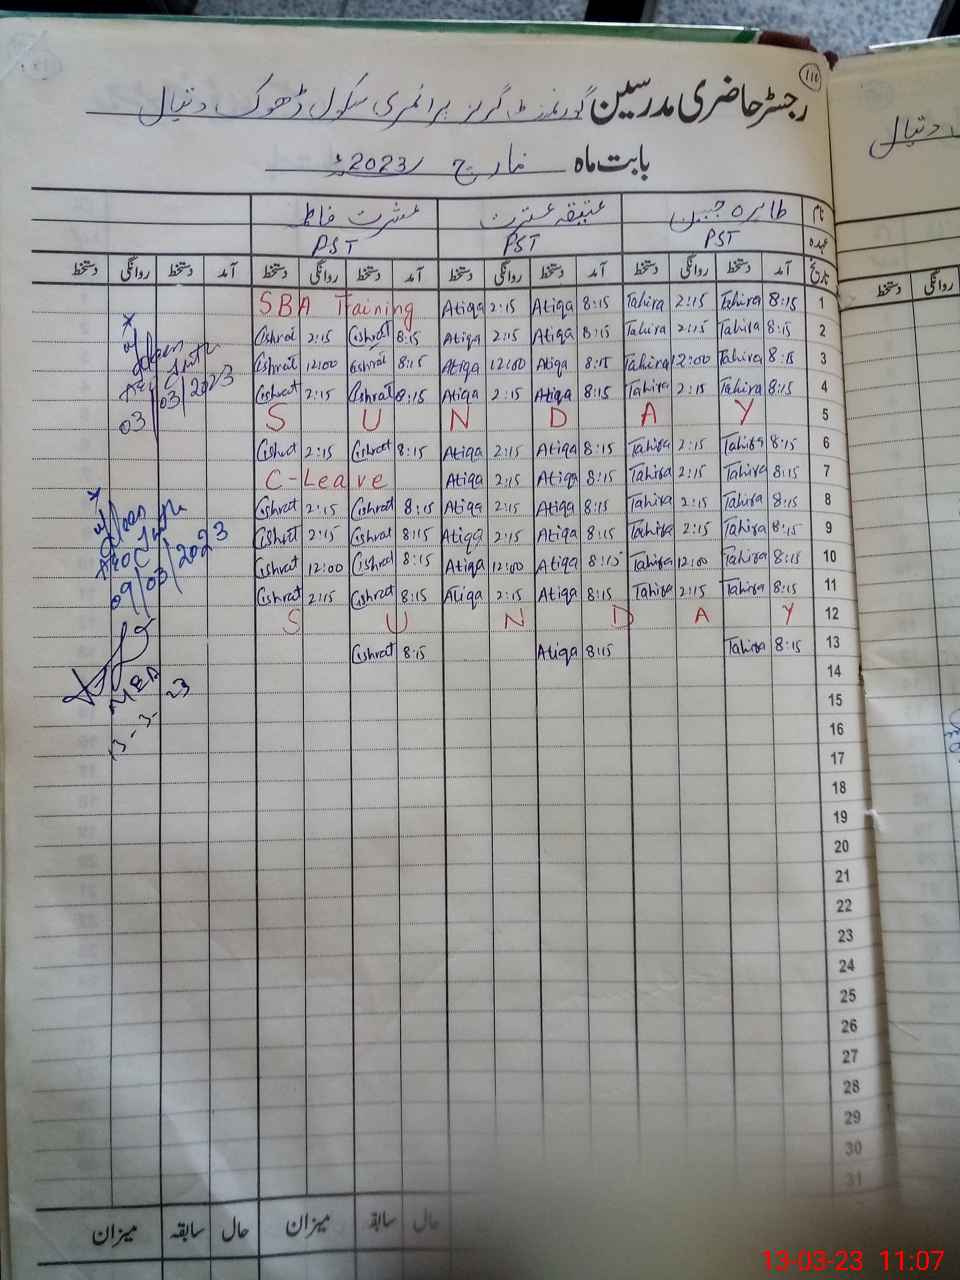 110
رجسٹر حاضری مدرسین گورنمنٹ گرلز پرائمری سکول ڈھوک دتیال
بابت ماہ مارچ 2023ء
نام طاہرہ جبین عتیقہ عشرت عشرت فاطمہ
عہدہ PST PST PST
تاریخ آمد دستخط روانگی دستخط آمد دستخط روانگی دستخط آمد دستخط روانگی دستخط آمد دستخط روانگی دستخط
SBA Training Atiqa 2:15 Atiqa 8:15 Tahira 2:15 Tahira 8:15 1
Cishrat 2:15 Cishrat 8:15 Atiqa 2:15 Atiqa 8:15 Tahira 2:15 Tahira 8:15 2
Cishrat 12:00 Cishrat 8:15 Atiqa 12:00 Atiqa 8:15 Tahira 12:00 Tahira 8:15 3
Cishrat 2:15 Cishrat 8:15 Atiqa 2:15 Atiqa 8:15 Tahira 2:15 Tahira 8:15 4
S U N D A Y 5
Cishrat 2:15 Cishrat 8:15 Atiqa 2:15 Atiqa 8:15 Tahira 2:15 Tahira 8:15 6
C-Leave Atiqa 2:15 Atiqa 8:15 Tahira 2:15 Tahira 8:15 7
Cishrat 2:15 Cishrat 8:15 Atiqa 2:15 Atiqa 8:15 Tahira 2:15 Tahira 8:15 8
Cishrat 2:15 Cishrat 8:15 Atiqa 2:15 Atiqa 8:15 Tahira 2:15 Tahira 8:15 9
Cishrat 12:00 Cishrat 8:15 Atiqa 12:00 Atiqa 8:15 Tahira 12:00 Tahira 8:15 10
Cishrat 2:15 Cishrat 8:15 Atiqa 2:15 Atiqa 8:15 Tahira 2:15 Tahira 8:15 11
S U N D A Y 12
Cishrat 8:15 Atiqa 8:15 Tahira 8:15 13
14
15
16
17
18
19
20
21
22
23
24
25
26
27
28
29
30
31
03/03/2023
09/03/2023
13-3-23
حال سابقہ میزان حال سابقہ میزان
دتیال
روانگی دستخط
13-03-23 11:07